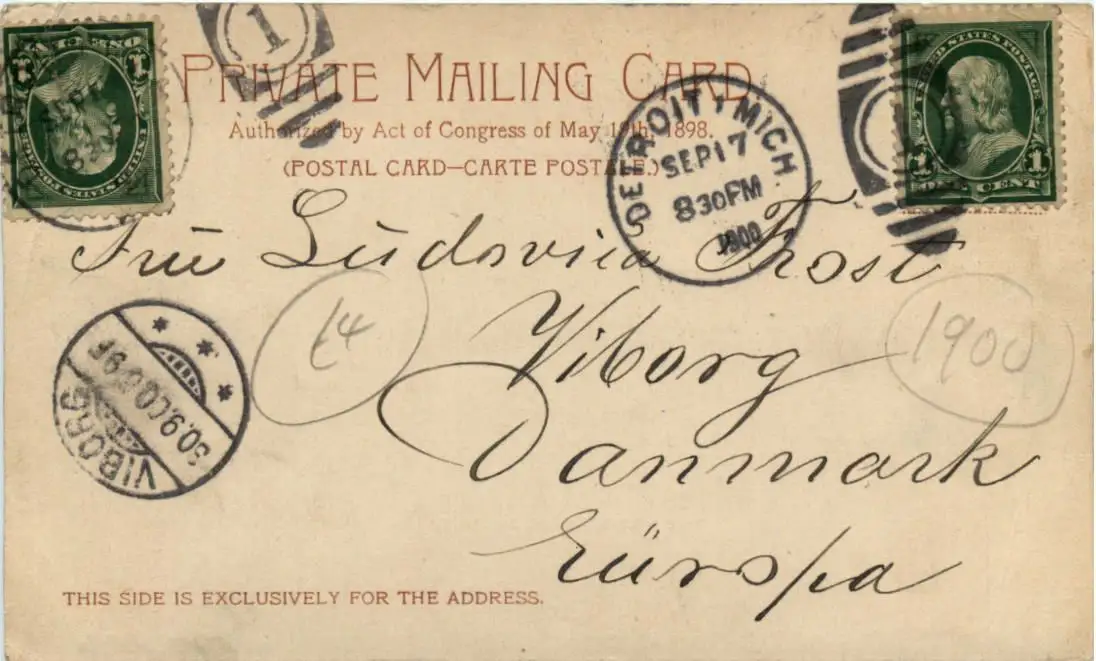 PRIVATE MAILING CARD.
Authorized by Act of Congress of May 19th, 1898.
(POSTAL CARD—CARTE POSTALE.)
1
1
UNITED STATES POSTAGE
1 1
ONE CENT
DETROIT, MICH
SEP 17
830PM
1900
Frü Lüdovica Frost
Viborg
Danmark
Eüropa
t4
1900
VIBORG
30.9.00.6-9F
THIS SIDE IS EXCLUSIVELY FOR THE ADDRESS.